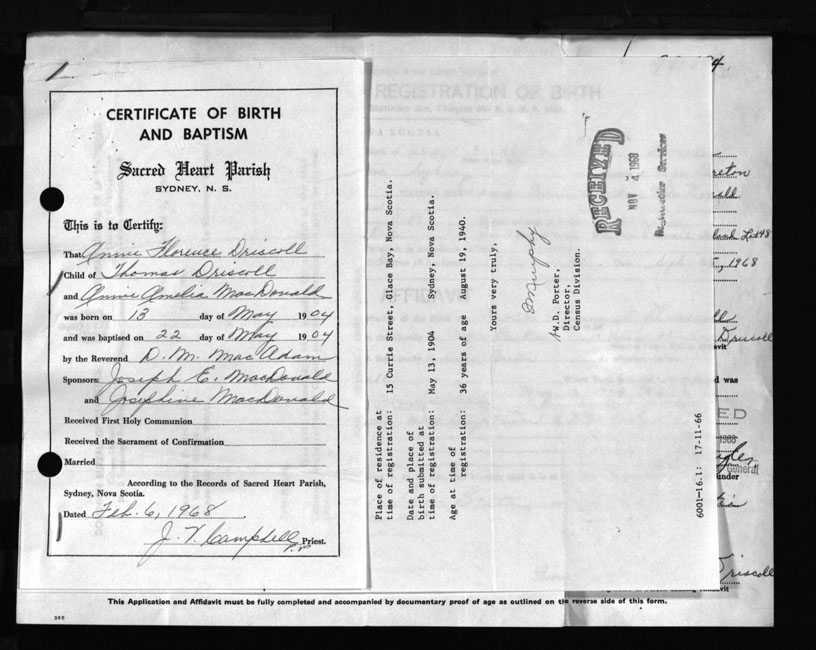 CERTIFICATE OF BIRTH
AND BAPTISM
Sacred Heart Parish
SYDNEY, N. S.
This is to Certify:
That Annie Florence Driscoll
Child of Thomas Driscoll
and Annie Amelia MacDonald
was born on 13 day of May 1904
and was baptised on 22 day of May 1904
by the Reverend D. M. MacAdam
Sponsors: Joseph E. MacDonald
and Josephine MacDonald
Received First Holy Communion
Received the Sacrament of Confirmation
Married
According to the Records of Sacred Heart Parish,
Sydney, Nova Scotia.
Dated Feb. 6, 1968.
J. V. Campbell P.P. Priest.
Place of residence at
time of registration: 15 Currie Street, Glace Bay, Nova Scotia.
Date and place of
birth submitted at
time of registration: May 13, 1904 Sydney, Nova Scotia.
Age at time of
registration: 36 years of age August 19, 1940.
Yours very truly,
Murphy
W.D. Porter,
Director,
Census Division.
RECEIVED
NOV 4 1968
6001-16.1: 17-11-66
REGISTRATION OF BIRTH
AFFIDAVIT
4
reton
ald
48
, 1968
Driscoll
avit
d was
ED
1968
General
under
riscoll
This Application and Affidavit must be fully completed and accompanied by documentary proof of age as outlined on the reverse side of this form.